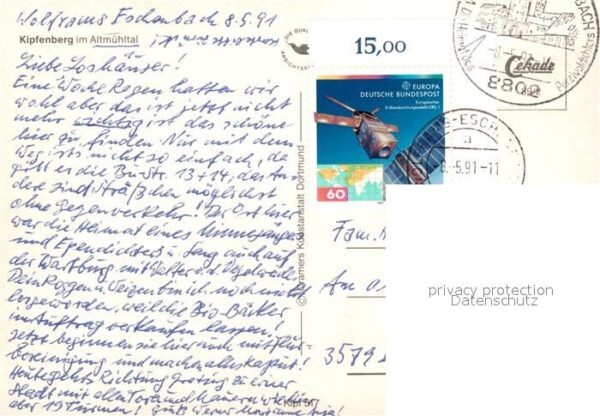 Wolframs Eschenbach 8.5.91
Kipfenberg im Altmühltal
Liebe Loshäuser!
Eine Woche Regen hatten wir
wohl aber das ist jetzt nicht
mehr wichtig ist das schöne
hier zu finden. Nur mit dem
Weg ists nicht so einfach, da
gibt es die Bu-Str. 13+14, das An
dere sind Sträßchen möglichst
ohne Gegenverkehr! Der Ort hier
war die Heimat eines Minnesängers
und Ependichters u. sang auch auf
der Wartburg mit Walter v.d. Vogelweide.
Dein Roggen u. Weizen bin ich noch nicht
losgeworden, weil die Bio-Bäcker
im Auftrag verkaufen lassen!
Jetzt beginnen sie hier auch mit Flur-
bereinigung und machen alles kaputt!
Heute gehts Richtung zu einer
Stadt mit allen Toren und Mauern
aber 19 Türmen! Grüß Werner
© Kramers Kunstanstalt Dortmund
Kipf 5/7
15,00
EUROPA
DEUTSCHE BUNDESPOST
Europäischer
Erdbeobachtungssatellit ERS-1
60
8802
-5.91-11
Cekade
Fam.
An
3579
privacy protection
Datenschutz